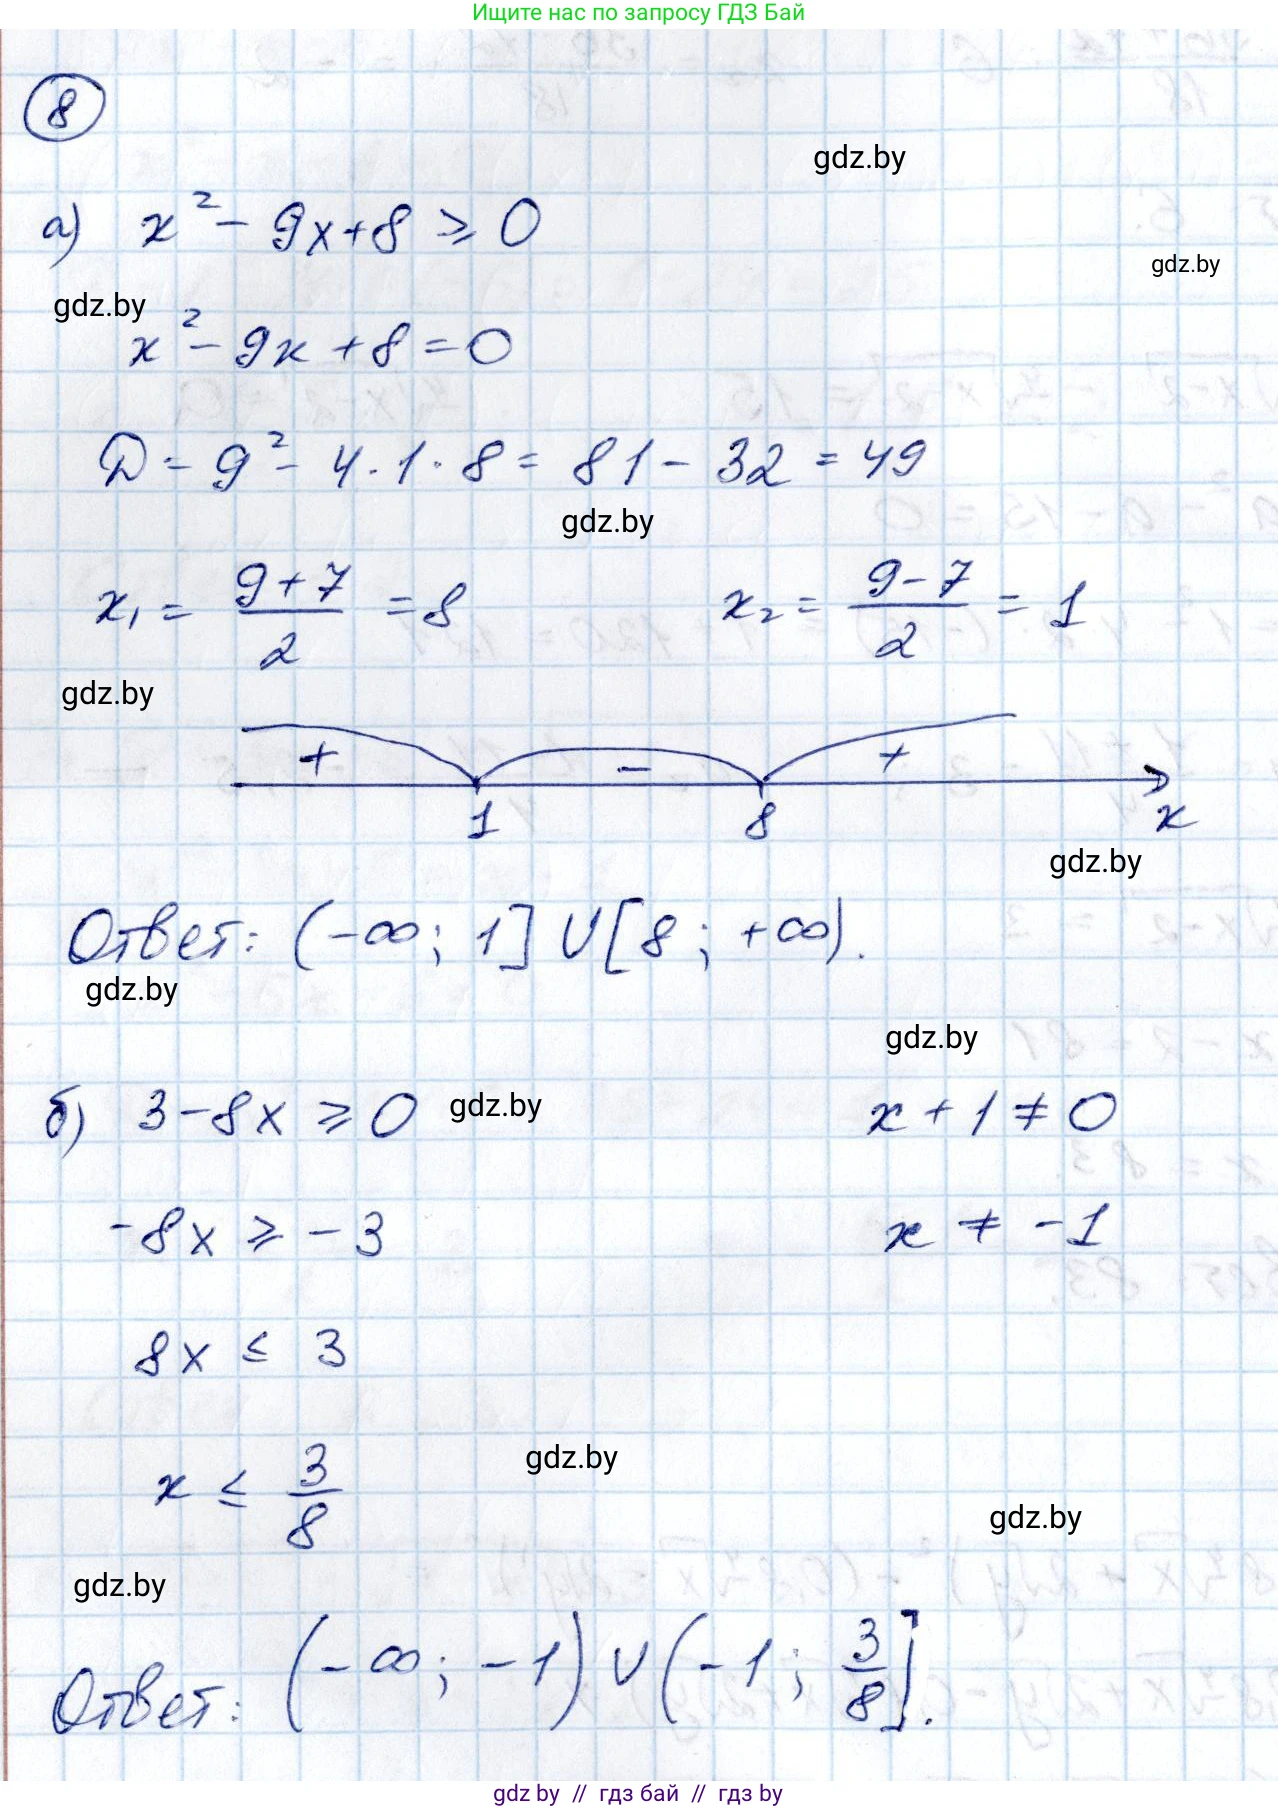 Ищите нас по запросу ГДЗ Бай
8
gdz.by
а) x² - 9x + 8 ⩾ 0
gdz.by
gdz.by
x² - 9x + 8 = 0
D = 9² - 4 · 1 · 8 = 81 - 32 = 49
gdz.by
x₁ = (9+7)/2 = 8 x₂ = (9-7)/2 = 1
gdz.by
+ - +
1 8 x
gdz.by
Ответ: (-∞; 1] ∪ [8; +∞).
gdz.by
gdz.by
б) 3 - 8x ⩾ 0 gdz.by x + 1 ≠ 0
-8x ⩾ -3 x ≠ -1
8x ≤ 3
gdz.by
x ≤ 3/8
gdz.by
gdz.by
Ответ: (-∞; -1) ∪ (-1; 3/8].
gdz by // гдз бай // гдз by